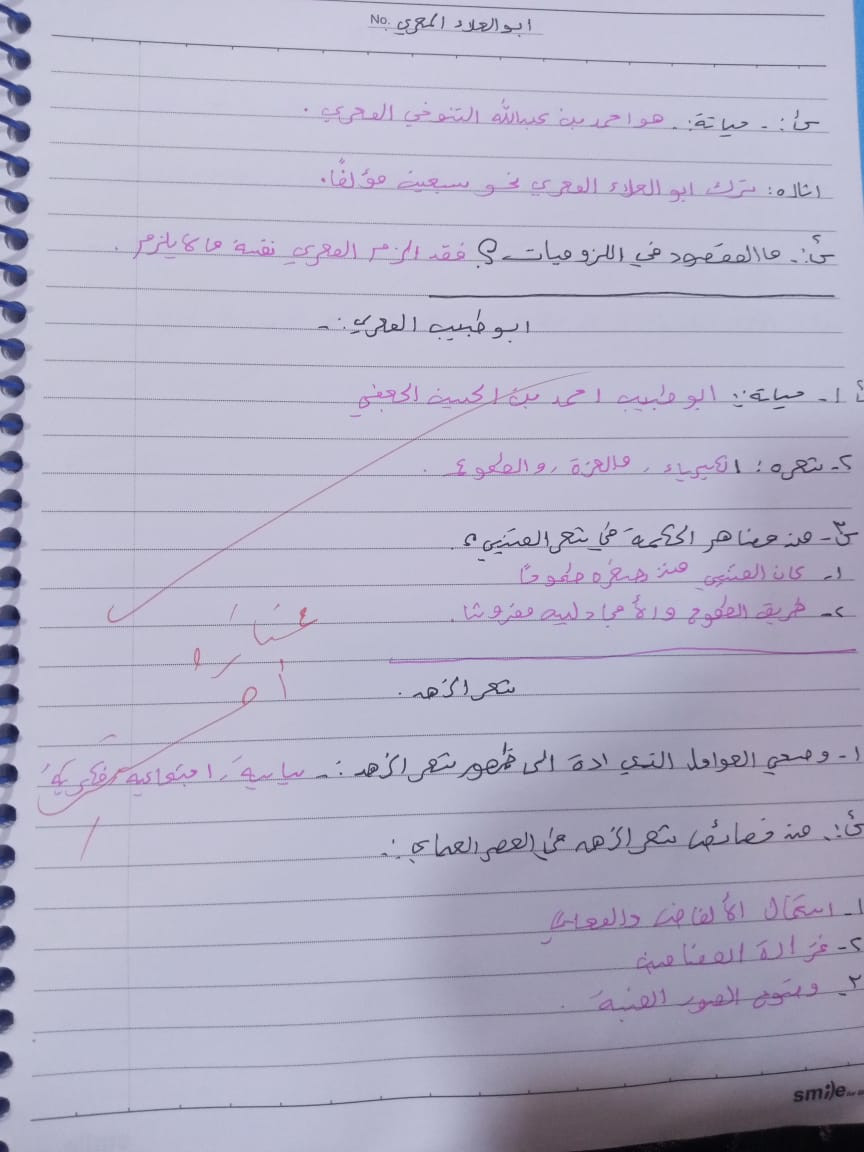 No. ابو العلاء المعري
س١:- حياتة:. هو احمد بن عبدالله التنوخي المعري .
اثاره: ترك ابو العلاء المعري نحو سبعين مؤلفًا.
س٢:. ما المقصود في اللزوميات ؟ فقد الزم المعري نفسة ما لا يلزم .
ابو طبيب المعري :-
١- حياتة:: ابو طبيب احمد بن الحسين الجعفي
٢- شعره : الكبرياء , والعزة , والطموع .
س٣- من مضاهر الحكمة في شعر المتنبي ؟.
١- كان المتنبي منذ صغره طموحًا
٢- طريق الطموح والأمجاد ليه مفروشا.
شعر الزهد .
١- وضحي العوامل التي ادة الى ظهور شعر الزهد :- سياسية , اجتماعية , فكرية
س٢:. من خصائص شعر الزهد في العصر العباسي :.
١- استعمال الألفاض والمعاني
٢- غزالة المضامين
٣- وتنوع الصور الفنية .
smile